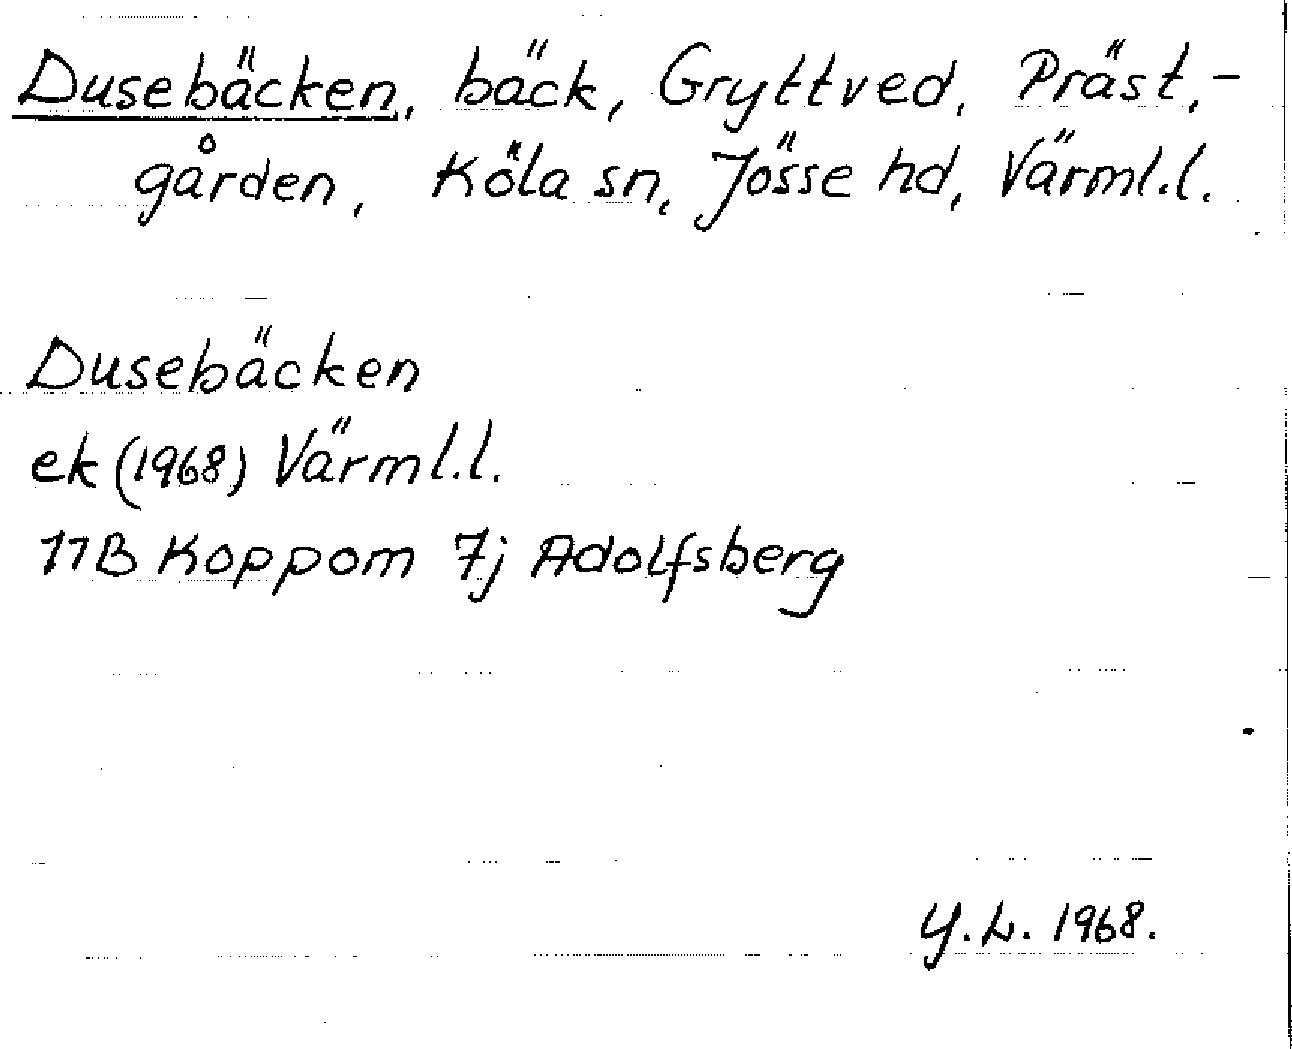 Dusebäcken, bäck, Gryttved, Präst,-
gården, Köla sn, Jösse hd, Värml.l.
Dusebäcken
ek (1968) Värml.l.
11B Koppom 7j Adolfsberg
Y.L. 1968.